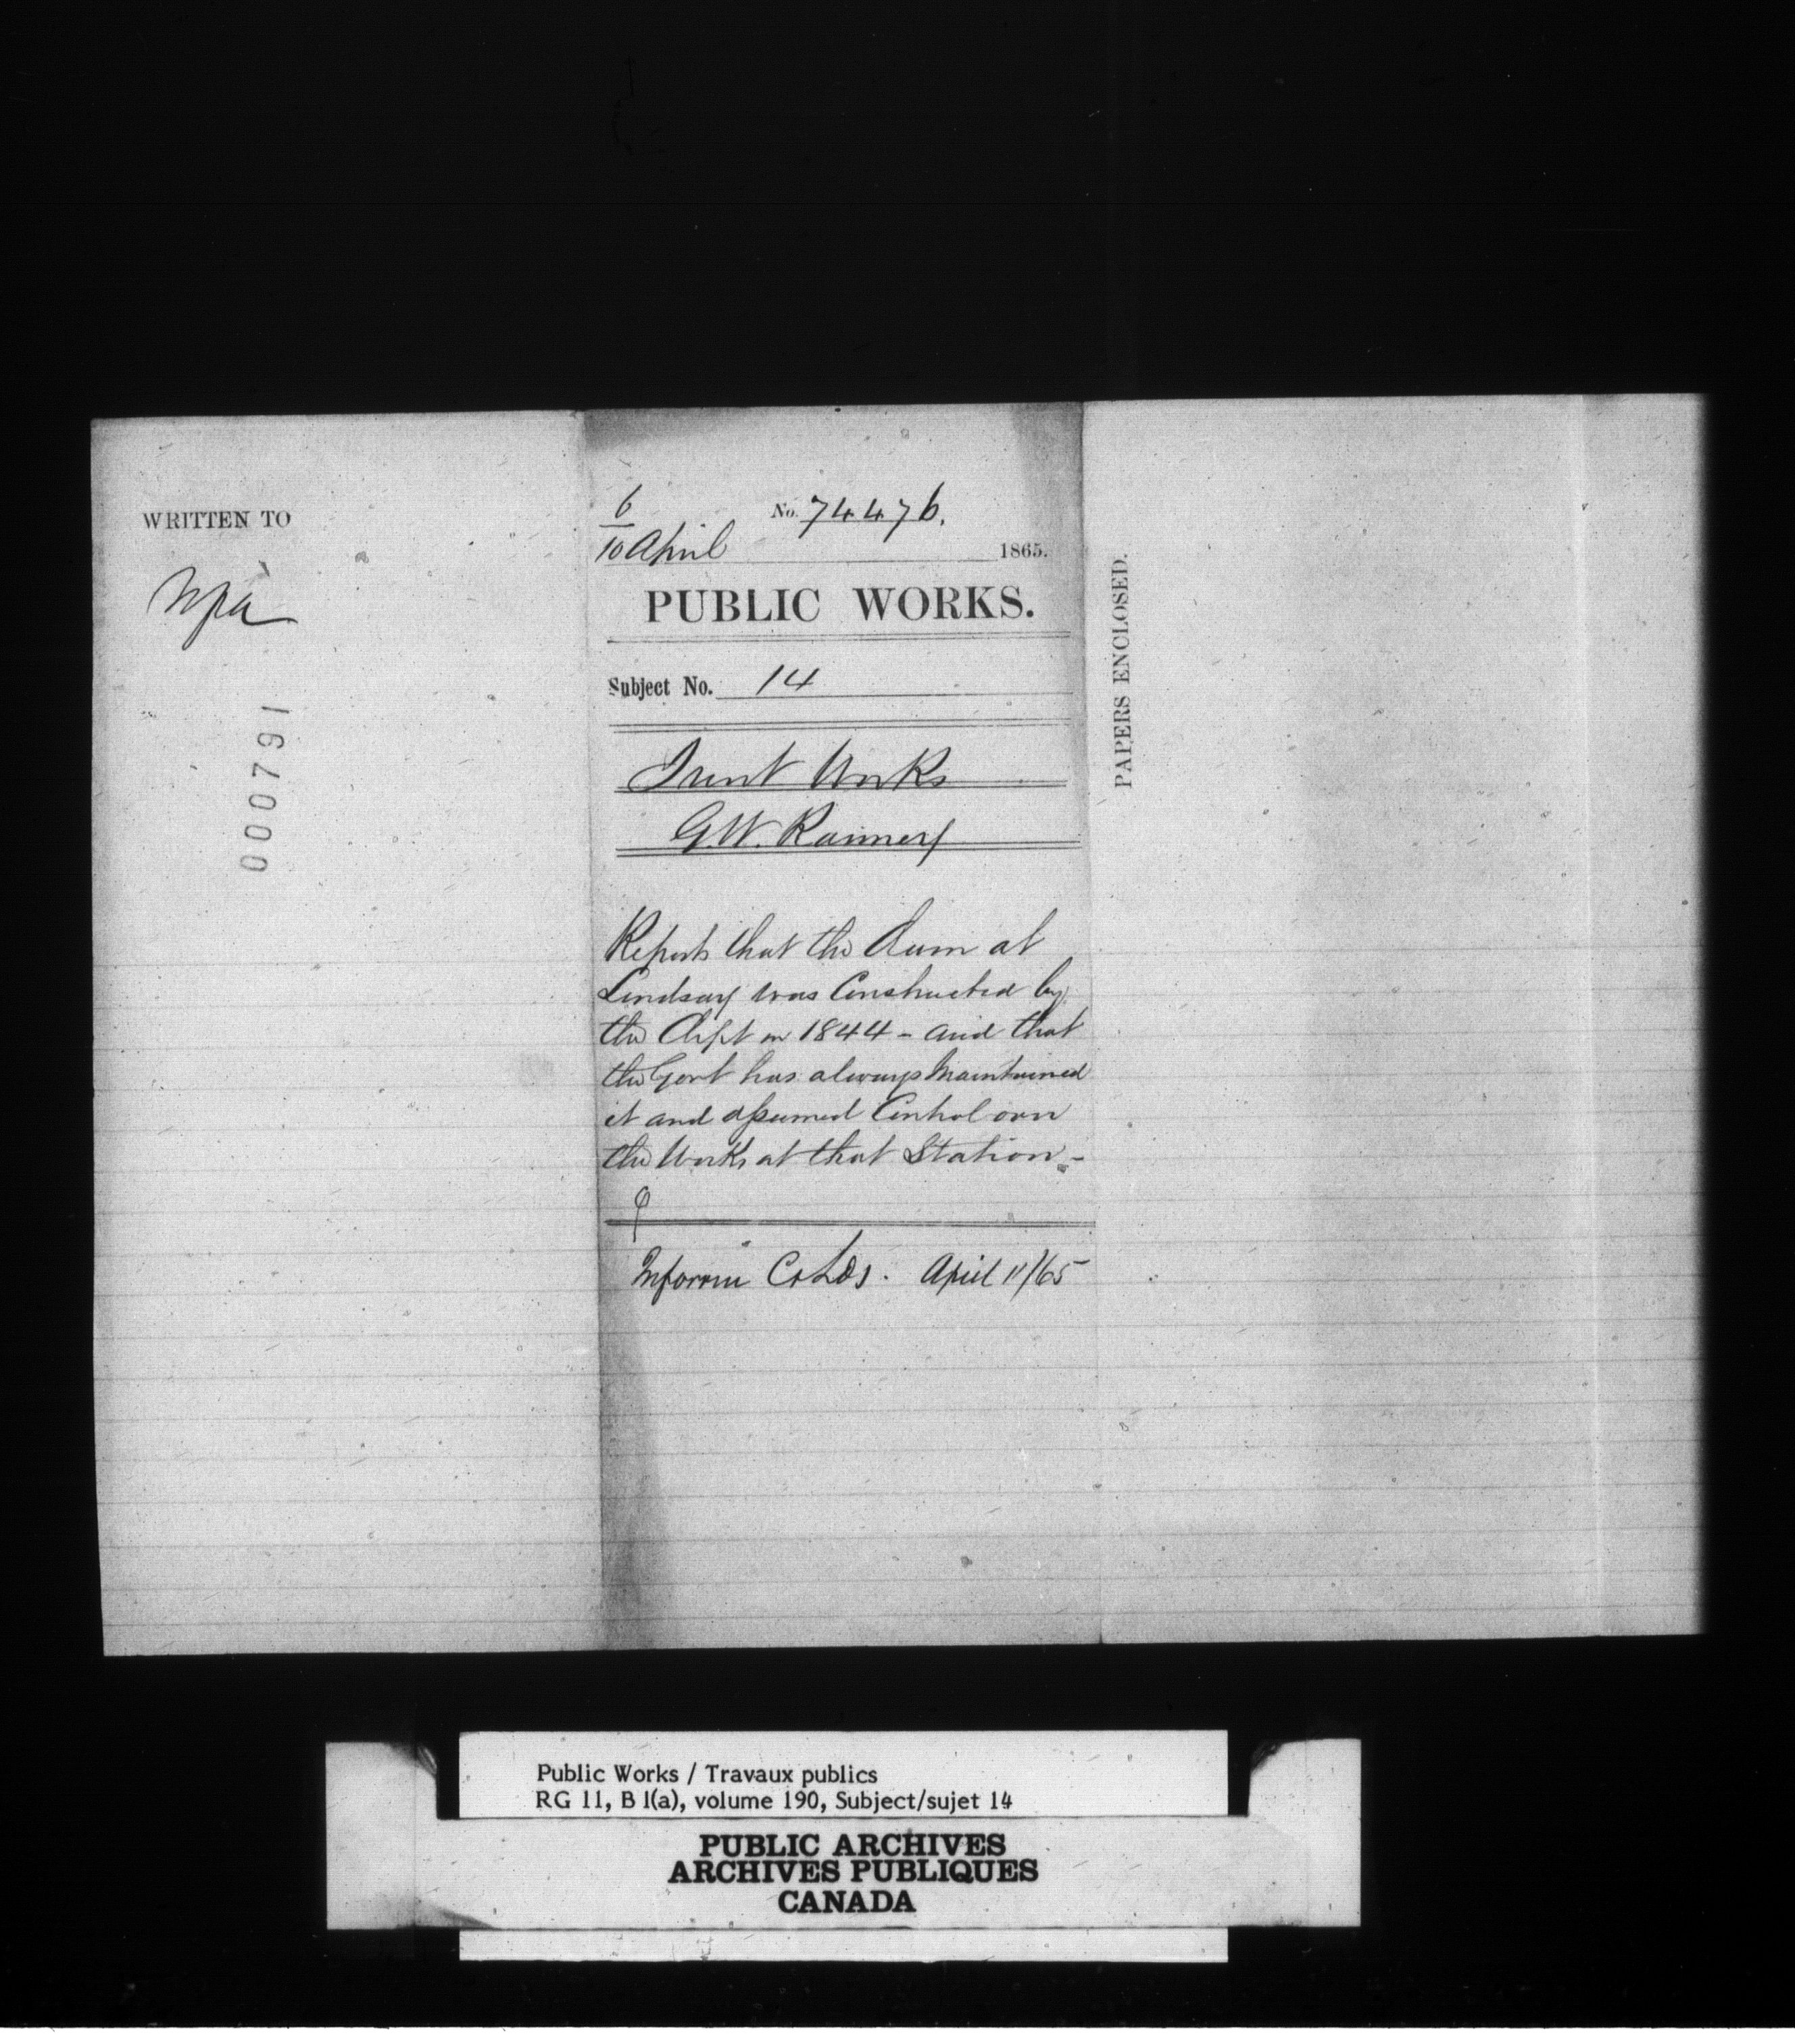 WRITTEN TO
000791
6
No. 74476.
10 April 1865.
PUBLIC WORKS.
Subject No. 14
Trent Works
G.W. Ranney
Reports that the dam at
Lindsay was Constructed by
the Dept in 1844 - and that
the Govt has always Maintained
it and assumed Control over
the Works at that Station -
Inform C. Lds. April 11/65
PAPERS ENCLOSED.
Public Works / Travaux publics
RG 11, B 1(a), volume 190, Subject/sujet 14
PUBLIC ARCHIVES
ARCHIVES PUBLIQUES
CANADA